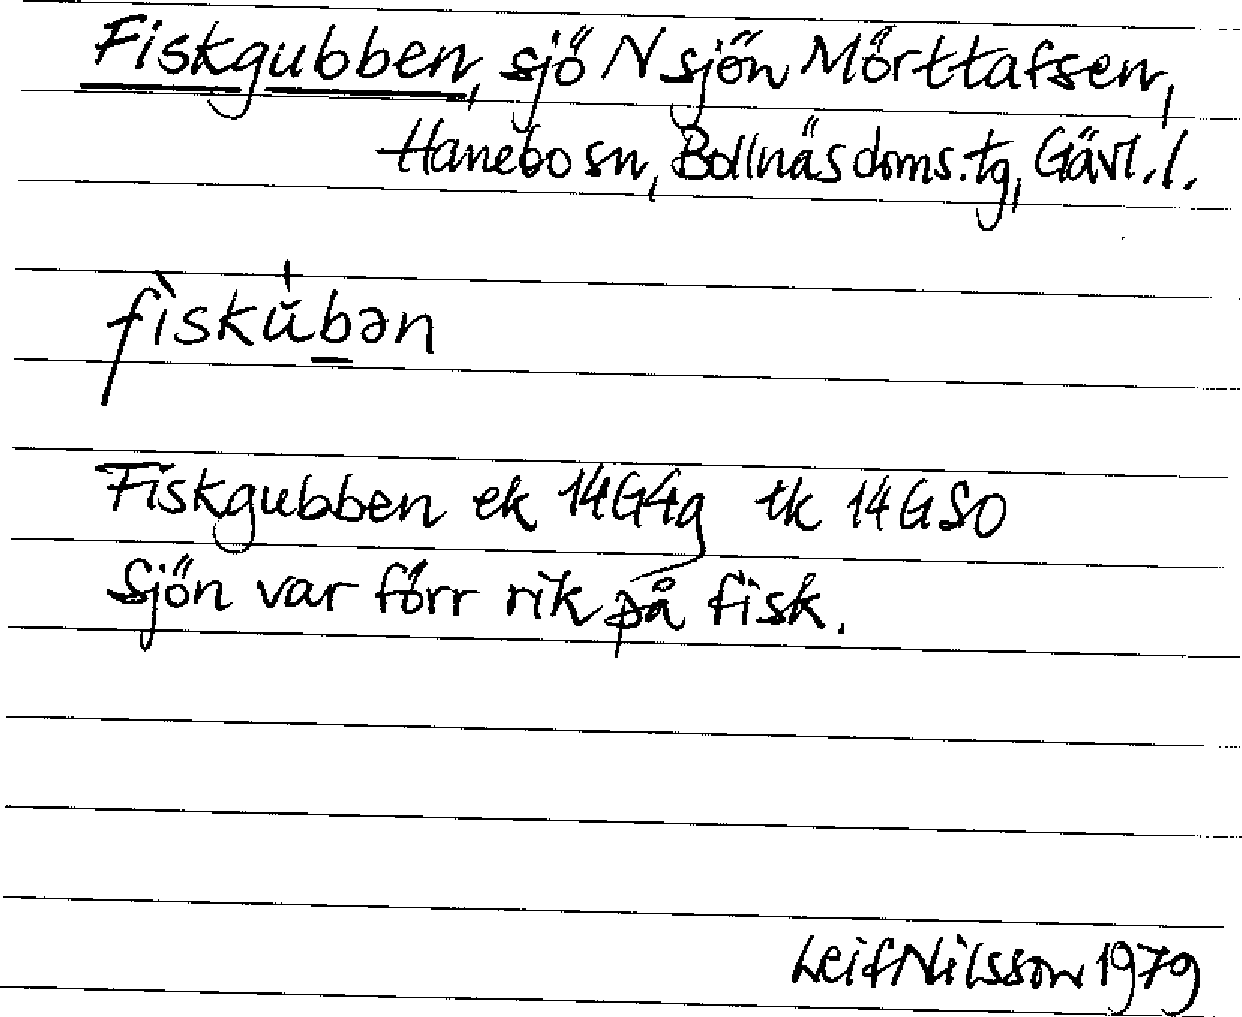 Fiskgubben, sjö N sjön Mörttafsen,
Hanebo sn, Bollnäs doms.tg, Gävl.l.
fìskŭ̍bən
Fiskgubben ek 14G4g tk 14GSO
Sjön var förr rik på fisk.
Leif Nilsson 1979